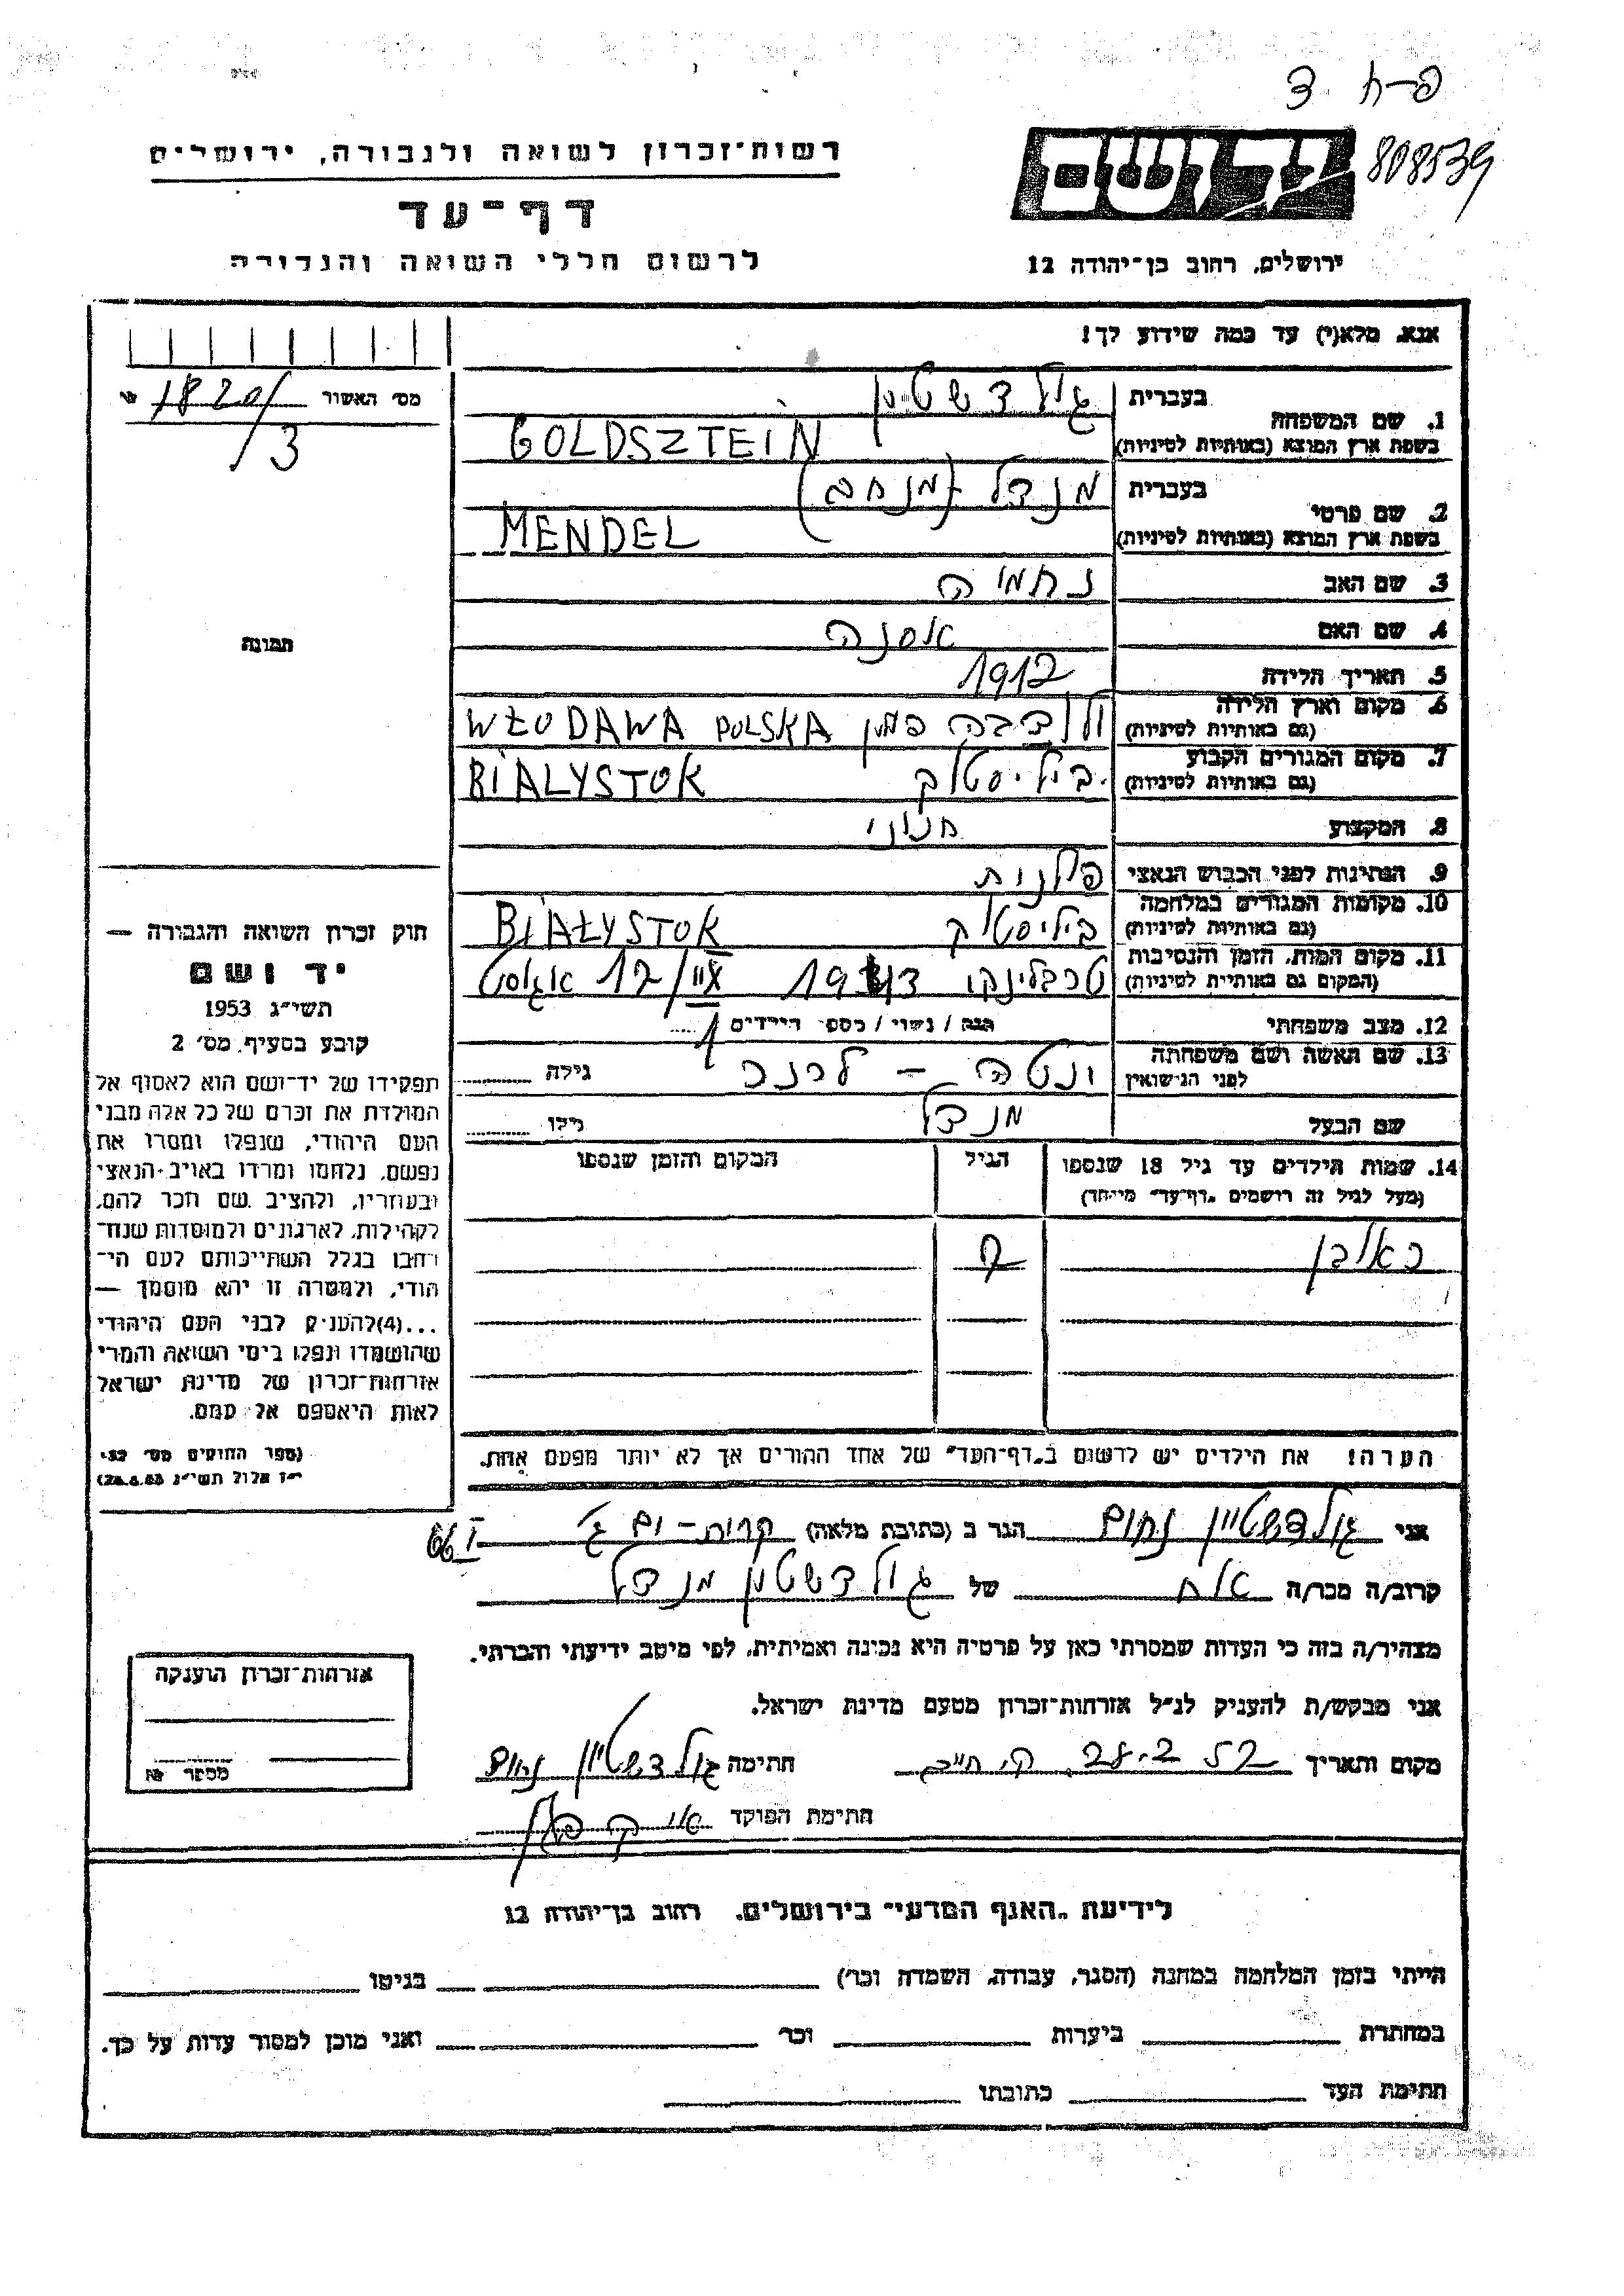 פ-ח ד.
808539
יד ושם
רשות־זכרון לשואה ולגבורה, ירושלים
דף־עד
לרשום חללי השואה והגבורה
ירושלים, רחוב בן־יהודה 12
אנא, מלא(י) עד כמה שידוע לך!
מס׳ האשור 1820/
/3
1. שם המשפחה
בעברית גולדשטין
בשפת ארץ המוצא (באותיות לטיניות) GOLDSZTEIN
2. שם פרטי
בעברית מנדל (מנחם)
בשפת ארץ המוצא (באותיות לטיניות) MENDEL
3. שם האב נחמיה
4. שם האם אסנה
תמונה
5. תאריך הלידה 1912
6. מקום וארץ הלידה
(גם באותיות לטיניות) ולודבה פולין WŁODAWA POLSKA
7. מקום המגורים הקבוע
(גם באותיות לטיניות) ביליסטוק BIALYSTOK
8. המקצוע חנוני
9. הנתינות לפני הכבוש הנאצי פולנית
10. מקומות המגורים במלחמה
(גם באותיות לטיניות) ביליסטוק BIAŁYSTOK
11. מקום המות, הזמן והנסיבות
(המקום גם באותיות לטיניות) טרבלינקו 1943 12/VIII אוגוסט
12. מצב משפחתי רוק / נשוי / מספר הילדים 1
13. שם האשה ושם משפחתה
לפני הנישואין ונטה – לרנר גילה
שם הבעל מנדל גילו
14. שמות הילדים עד גיל 18 שנספו
(מעל לגיל זה רושמים „דף־עד״ מיוחד)
הגיל
המקום והזמן שנספו
ראובן 2
הערה! את הילדים יש לרשום ב„דף־העד״ של אחד ההורים אך לא יותר מפעם אחת.
חוק זכרון השואה והגבורה —
יד ושם
תשי״ג 1953
קובע בסעיף מס׳ 2
תפקידו של יד־ושם הוא לאסוף אל
המולדת את זכרם של כל אלה מבני
העם היהודי, שנפלו ומסרו את
נפשם, נלחמו ומרדו באויב הנאצי
ובעוזריו, ולהציב שם וזכר להם,
לקהילות, לארגונים ולמוסדות שנח־
רחבו בגלל השתייכותם לעם הי־
הודי, ולמטרה זו יהא מוסמך —
...(4) להעניק לבני העם היהודי
שהושמדו ונפלו בימי השואה והמרי
אזרחות־זכרון של מדינת ישראל
לאות היאספם אל עמם.
(ספר החוקים מס׳ 132,
י״ז אלול תשי״ג 28.8.53)
אני גולדשטיין נחום הגר ב (כתובת מלאה) קרית-ים ג׳ 66 I
קרוב/ה מכר/ה אח של גולדשטין מנדל
מצהיר/ה בזה כי העדות שמסרתי כאן על פרטיה היא נכונה ואמיתית, לפי מיטב ידיעתי והכרתי.
אני מבקש/ת להעניק לנ״ל אזרחות־זכרון מטעם מדינת ישראל.
מקום ותאריך חתימה גולדשטיין נחום
חתימת הפוקד
אזרחות־זכרון הוענקה
מספר
לידיעת „האגף המדעי״ בירושלים, רחוב בן־יהודה 12
הייתי בזמן המלחמה במחנה (הסגר, עבודה, השמדה וכו׳) בגיטו
במחתרת ביערות וכו׳ ואני מוכן למסור עדות על כך.
חתימת העד כתובתו